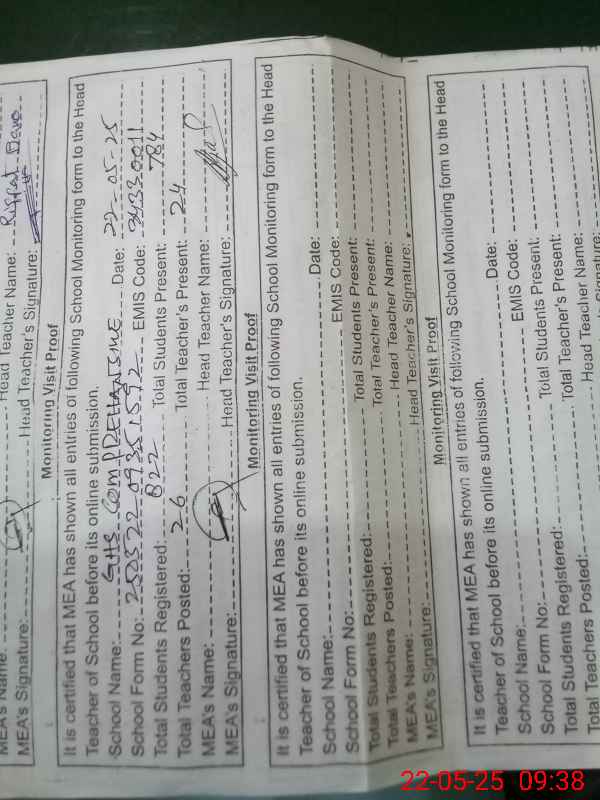 Head Teacher Name:
MEA's Signature: Head Teacher's Signature:
Monitoring Visit Proof
It is certified that MEA has shown all entries of following School Monitoring form to the Head
Teacher of School before its online submission.
School Name: GHS COMPREHANSIVE Date: 22-05-25
School Form No: EMIS Code:
Total Students Registered: 822 Total Students Present: 784
Total Teachers Posted: 26 Total Teacher's Present: 24
MEA's Name: Head Teacher Name:
MEA's Signature: Head Teacher's Signature:
Monitoring Visit Proof
It is certified that MEA has shown all entries of following School Monitoring form to the Head
Teacher of School before its online submission.
School Name: Date:
School Form No: EMIS Code:
Total Students Registered: Total Students Present:
Total Teachers Posted: Total Teacher's Present:
MEA's Name: Head Teacher Name:
MEA's Signature: Head Teacher's Signature:
Monitoring Visit Proof
It is certified that MEA has shown all entries of following School Monitoring form to the Head
Teacher of School before its online submission.
School Name: Date:
School Form No: EMIS Code:
Total Students Registered: Total Students Present:
Total Teachers Posted: Total Teacher's Present:
Head Teacher Name:
22-05-25 09:38